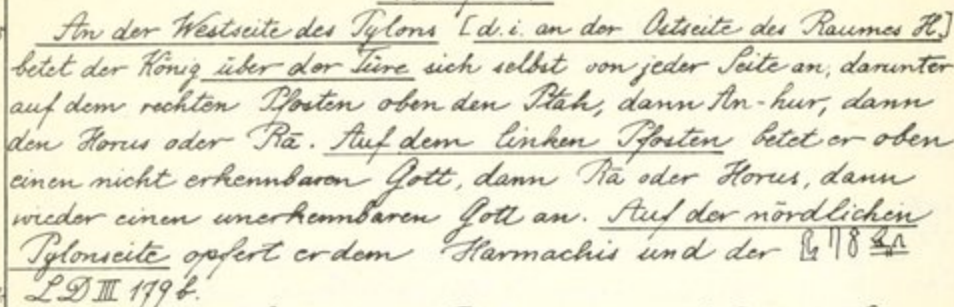 An der Westseite des Pylons [d. i. an der Ostseite des Raumes H.]
betet der König über der Türe sich selbst von jeder Seite an, darunter
auf dem rechten Pfosten oben den Ptah, dann An-hur, dann
den Horus oder Rā. Auf dem linken Pfosten betet er oben
einen nicht erkennbaren Gott, dann Rā oder Horus, dann
wieder einen unerkennbaren Gott an. Auf der nördlichen
Pylonseite opfert er dem Harmachis und der
LD III 179 b.